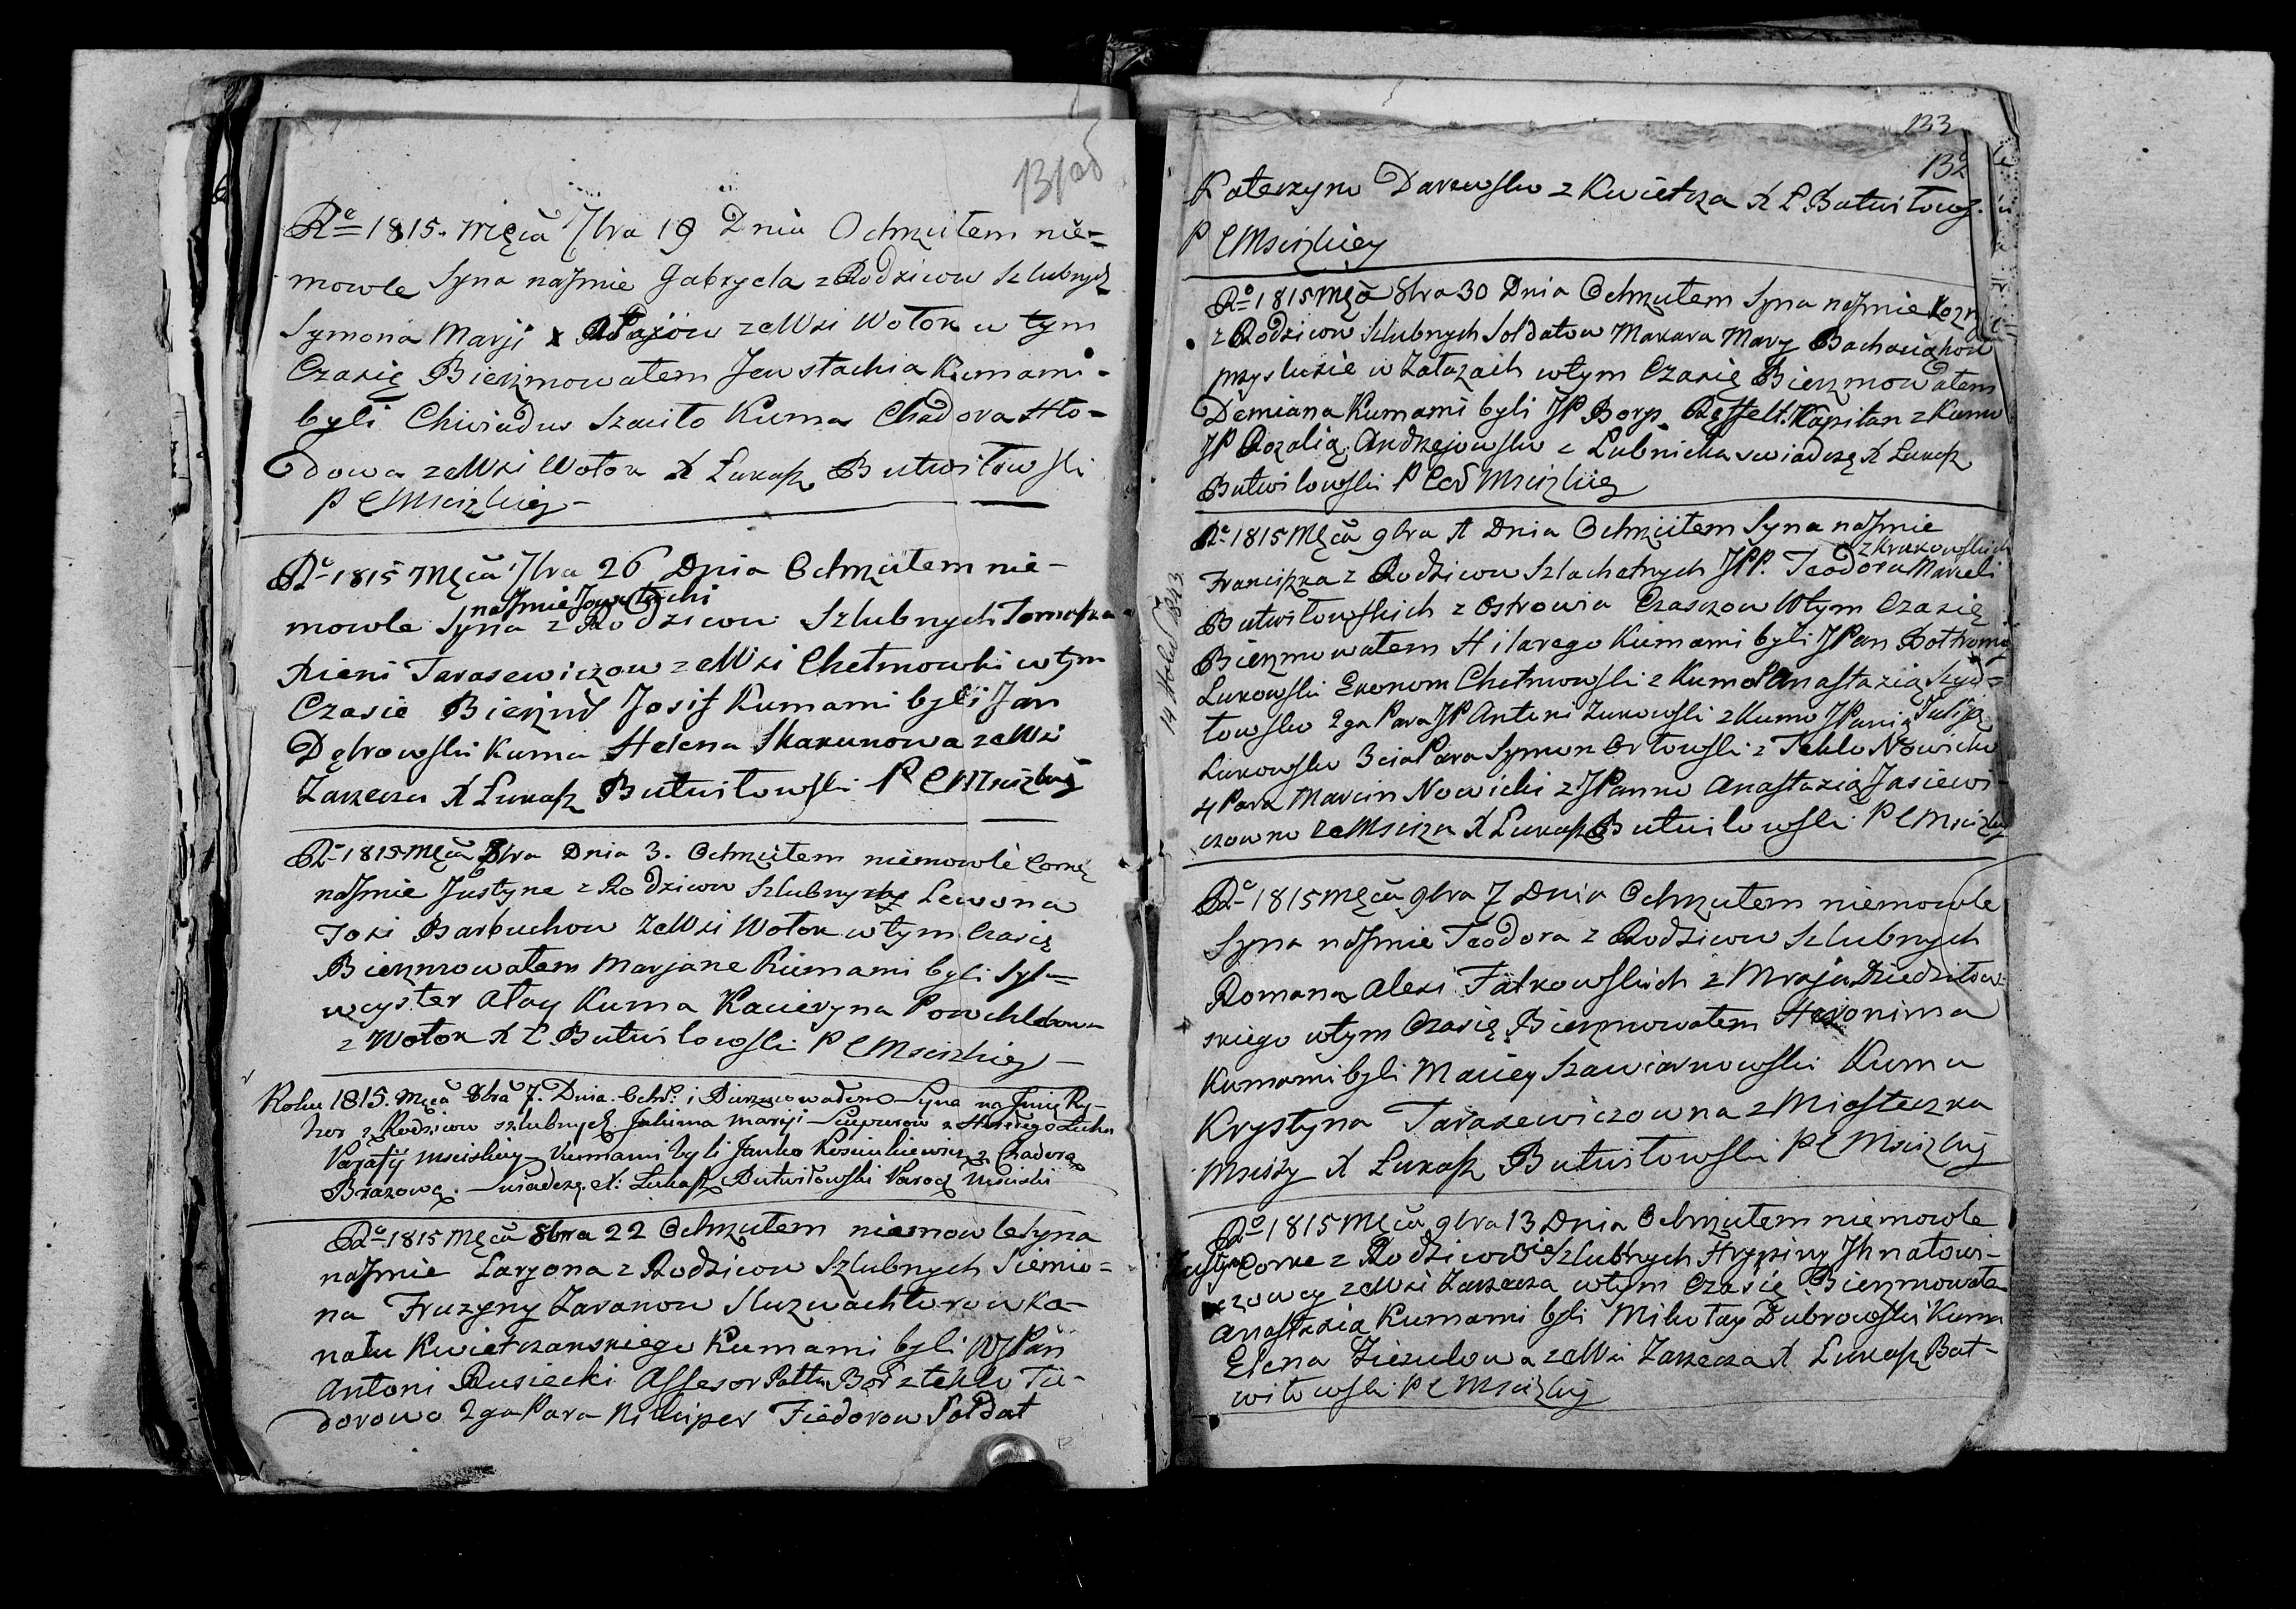 131об
Rº 1815. Męca 7bra 19 Dnia Ochrzciłem nie=
mowle Syna naJmie Gabryela z Rodzicow Szlubnych
Symona Marji x ałajow zeWsi Wołok w tym
Czasię Bierzmowałem Jewstachia Kumami
byli Szauło Kuma Chadora Hło=
dowa zeWsi Wołok X Łukasz Butwiłowski
P C Mscizkiej
Rº 1815 Męca 7bra 26 Dnia Ochrzciłem nie-
naJmie Jewstachi
mowle Syna z Rodzicow Szlubnych Tomasza
Xieni Tarasewiczow zeWsi Chełmowki w tym
Czasie Bierzmo Josif Kumami byli Jan
Dąbrowski Kuma Helena Skakunowa zeWsi
Zarzecza X Łukasz Butwiłowski P C Mscizkiej
Rº 1815 Męca 8bra Dnia 3. Ochrzciłem niemowle Corkę
naJmie Justyne z Rodzicow Szlubnych Lewona
Tozi Barbuchow ZeWsi Wołok w tym Czasię
Bierzmowałem Marjane Kumami byli Syl=
wester ałay Kuma Kacieryna Powchlebowa
z Wołok X Ł. Butwiłowski P C Mscizkiej
Roku 1815. Męca 8bra 7. Dnia. Ochr: i Bierzmowałem Syna na Jmię Ry-
hor z Rodzicow szlubnych Jakima Marji z
Parafij Mscisskiey Kumami byli Janko z Chadorą
Brazową. Swiadczę X: Łukasz Butwiłowski Paroch Mscisski
Rº 1815 Męca 8bra 22 Ochrzciłem niemowle Syna
naJmie Laryona z Rodzicow Szlubnych Siemio=
na Fruzyny Zaranow Słuzwachterow Ka-
nału Kwietczanskiego Kumami byli WJPan
Antoni Rusiecki Assesor Pattu Bor z Teklo Tu-
dorowo 2ga Para Nikiper Fiedorow Sołdat
133
132
Katerzyno Darewsko z Kwietcza X Ł. Butwiłows.
P C Mscizkiey
Rº 1815 Męca 8bra 30 Dnia Ochrzciłem Syna naJmie Kozm
z Rodzicow Szlubnych Sołdatow Makara Mary
przysłuzie w Załazaih w tym Czasię Bierzmowałem
Demiana Kumami byli JP Borys Kapitan z Kumo
JP Rozalią Andrzejowsko z Lubnicka swiadczę X Łukasz
Butwiłowski P Cer Mscizkiej
Rº 1815 Męca 9bra X Dnia Ochrzciłem Syna naJmie
z Krukowskich
Franciszka z Rodzicow Szlachetnych JPP. Teodora Marceli
Butwiłowskich z Ostrowia Czasczow Wtym Czasię
Bierzmowałem Hilarego Kumami byli JPan Bołtromiej
Łukowski Ekonom Chełmowski z Kumo Anastazią Szyd=
łowsko 2ga Para JP Antoni Łukowski z Kumo JPanią Juliją
Łukowsko 3cia Para Symon Orłowski z Teklo Nowicko
4 Para Marcin Nowicki z JPanno Anastazią Jasiewi-
czowno ze Mscisza X Łukasz Butwiłowski P C Mscizkiej
14 Нояб 1843
Rº 1815 Męca 9bra 7 Dnia Ochrzciłem niemowle
Syna naJmie Teodora z Rodzicow Szlubnych
Romana Alexi Fałkowskich z Mraja Dziedziłow-
skiego wtym Czasię Bierzmowałem Heronima
Kumami byli Maciey Szawiarnowski Kuma
Krystyna Tarasewiczowna z Miasteczka
Mscizy X Łukasz Butwiłowski P C Mscizkiej
Rº 1815 Męca 9bra 13 Dnia Ochrzciłem niemowle
Justyne Corke z Rodzicow nieSzlubnych Hrypiny Jhnatowi-
czowey zeWsi Zarzecza wtym Czasię Bierzmowałe
Anastazią Kumami byli Mikołay Dubrowski Kuma
Elena Ziezulowa zeWsi Zarzecza X Łukasz But-
wiłowski P C Mscizkiej